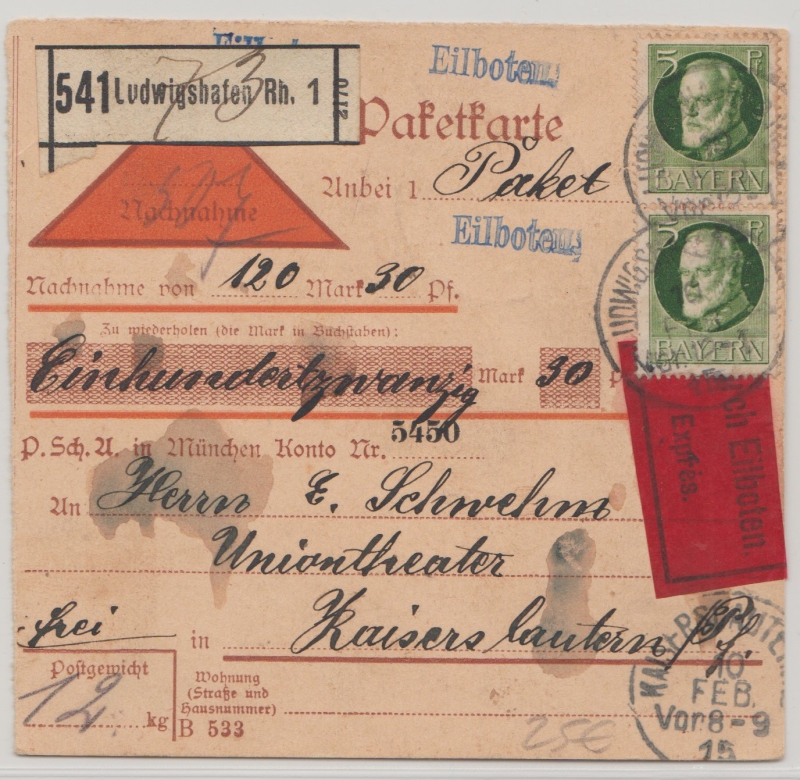 Eilboten
541 Ludwigshafen Rh. 1
2170
73
Paketkarte
Anbei 1 Paket
Nachnahme
Eilboten
Nachnahme von 120 Mark 30 Pf.
Zu wiederholen (die Mark in Buchstaben):
Einhundertzwanzig Mark 30
P. Sch. A. in München Konto Nr. 5450
An Herrn E. Schwehm
Uniontheater
frei
in Kaiserslautern /Pf.
Postgewicht
12 kg
Wohnung
(Straße und
Hausnummer)
B 533
25€
5 Pf
BAYERN
5 Pf
BAYERN
Eilboten.
Exprès.
10
FEB.
Vor 8-9
15